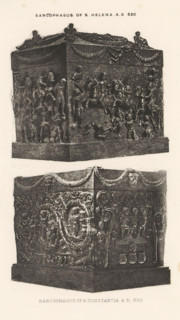 SARCOPHAGUS OF S. HELENA A.D. 330
SARCOPHAGUS OF S. CONSTANTIA A.D.